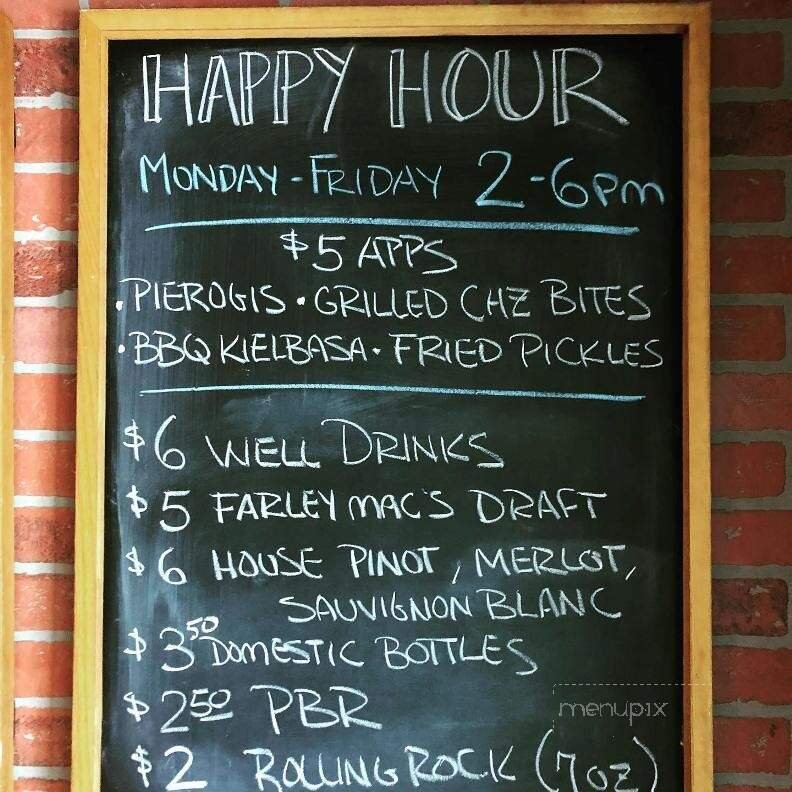 HAPPY HOUR
MONDAY - FRIDAY 2-6pm
$5 APPS
• PIEROGIS • GRILLED CHZ BITES
• BBQ KIELBASA • FRIED PICKLES
$6 WELL DRINKS
$5 FARLEY MAC'S DRAFT
$6 HOUSE PINOT, MERLOT,
SAUVIGNON BLANC
$3 50 DOMESTIC BOTTLES
$2 50 PBR
$2 ROLLING ROCK (7oz)
menupix